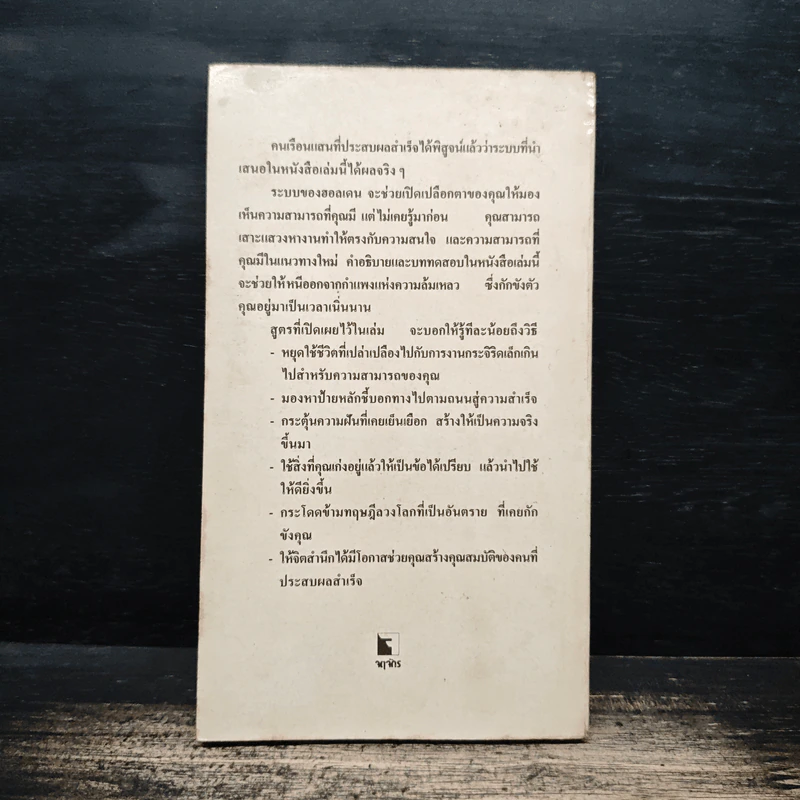 คนเรือนแสนที่ประสบผลสำเร็จได้พิสูจน์แล้วว่าระบบที่นำ
เสนอในหนังสือเล่มนี้ได้ผลจริง ๆ
ระบบของฮอลเดน จะช่วยเปิดเปลือกตาของคุณให้มอง
เห็นความสามารถที่คุณมี แต่ไม่เคยรู้มาก่อน คุณสามารถ
เสาะแสวงหางานทำให้ตรงกับความสนใจ และความสามารถที่
คุณมีในแนวทางใหม่ คำอธิบายและบททดสอบในหนังสือเล่มนี้
จะช่วยให้หนีออกจากกำแพงแห่งความล้มเหลว ซึ่งกักขังตัว
คุณอยู่มาเป็นเวลาเนิ่นนาน
สูตรที่เปิดเผยไว้ในเล่ม จะบอกให้รู้ทีละน้อยถึงวิธี
- หยุดใช้ชีวิตที่เปล่าเปลืองไปกับการงานกระจิริดเล็กเกิน
ไปสำหรับความสามารถของคุณ
- มองหาป้ายหลักชี้บอกทางไปตามถนนสู่ความสำเร็จ
- กระตุ้นความฝันที่เคยเย็นเยือก สร้างให้เป็นความจริง
ขึ้นมา
- ใช้สิ่งที่คุณเก่งอยู่แล้วให้เป็นข้อได้เปรียบ แล้วนำไปใช้
ให้ดียิ่งขึ้น
- กระโดดข้ามทฤษฎีลวงโลกที่เป็นอันตราย ที่เคยกัก
ขังคุณ
- ให้จิตสำนึกได้มีโอกาสช่วยคุณสร้างคุณสมบัติของคนที่
ประสบผลสำเร็จ